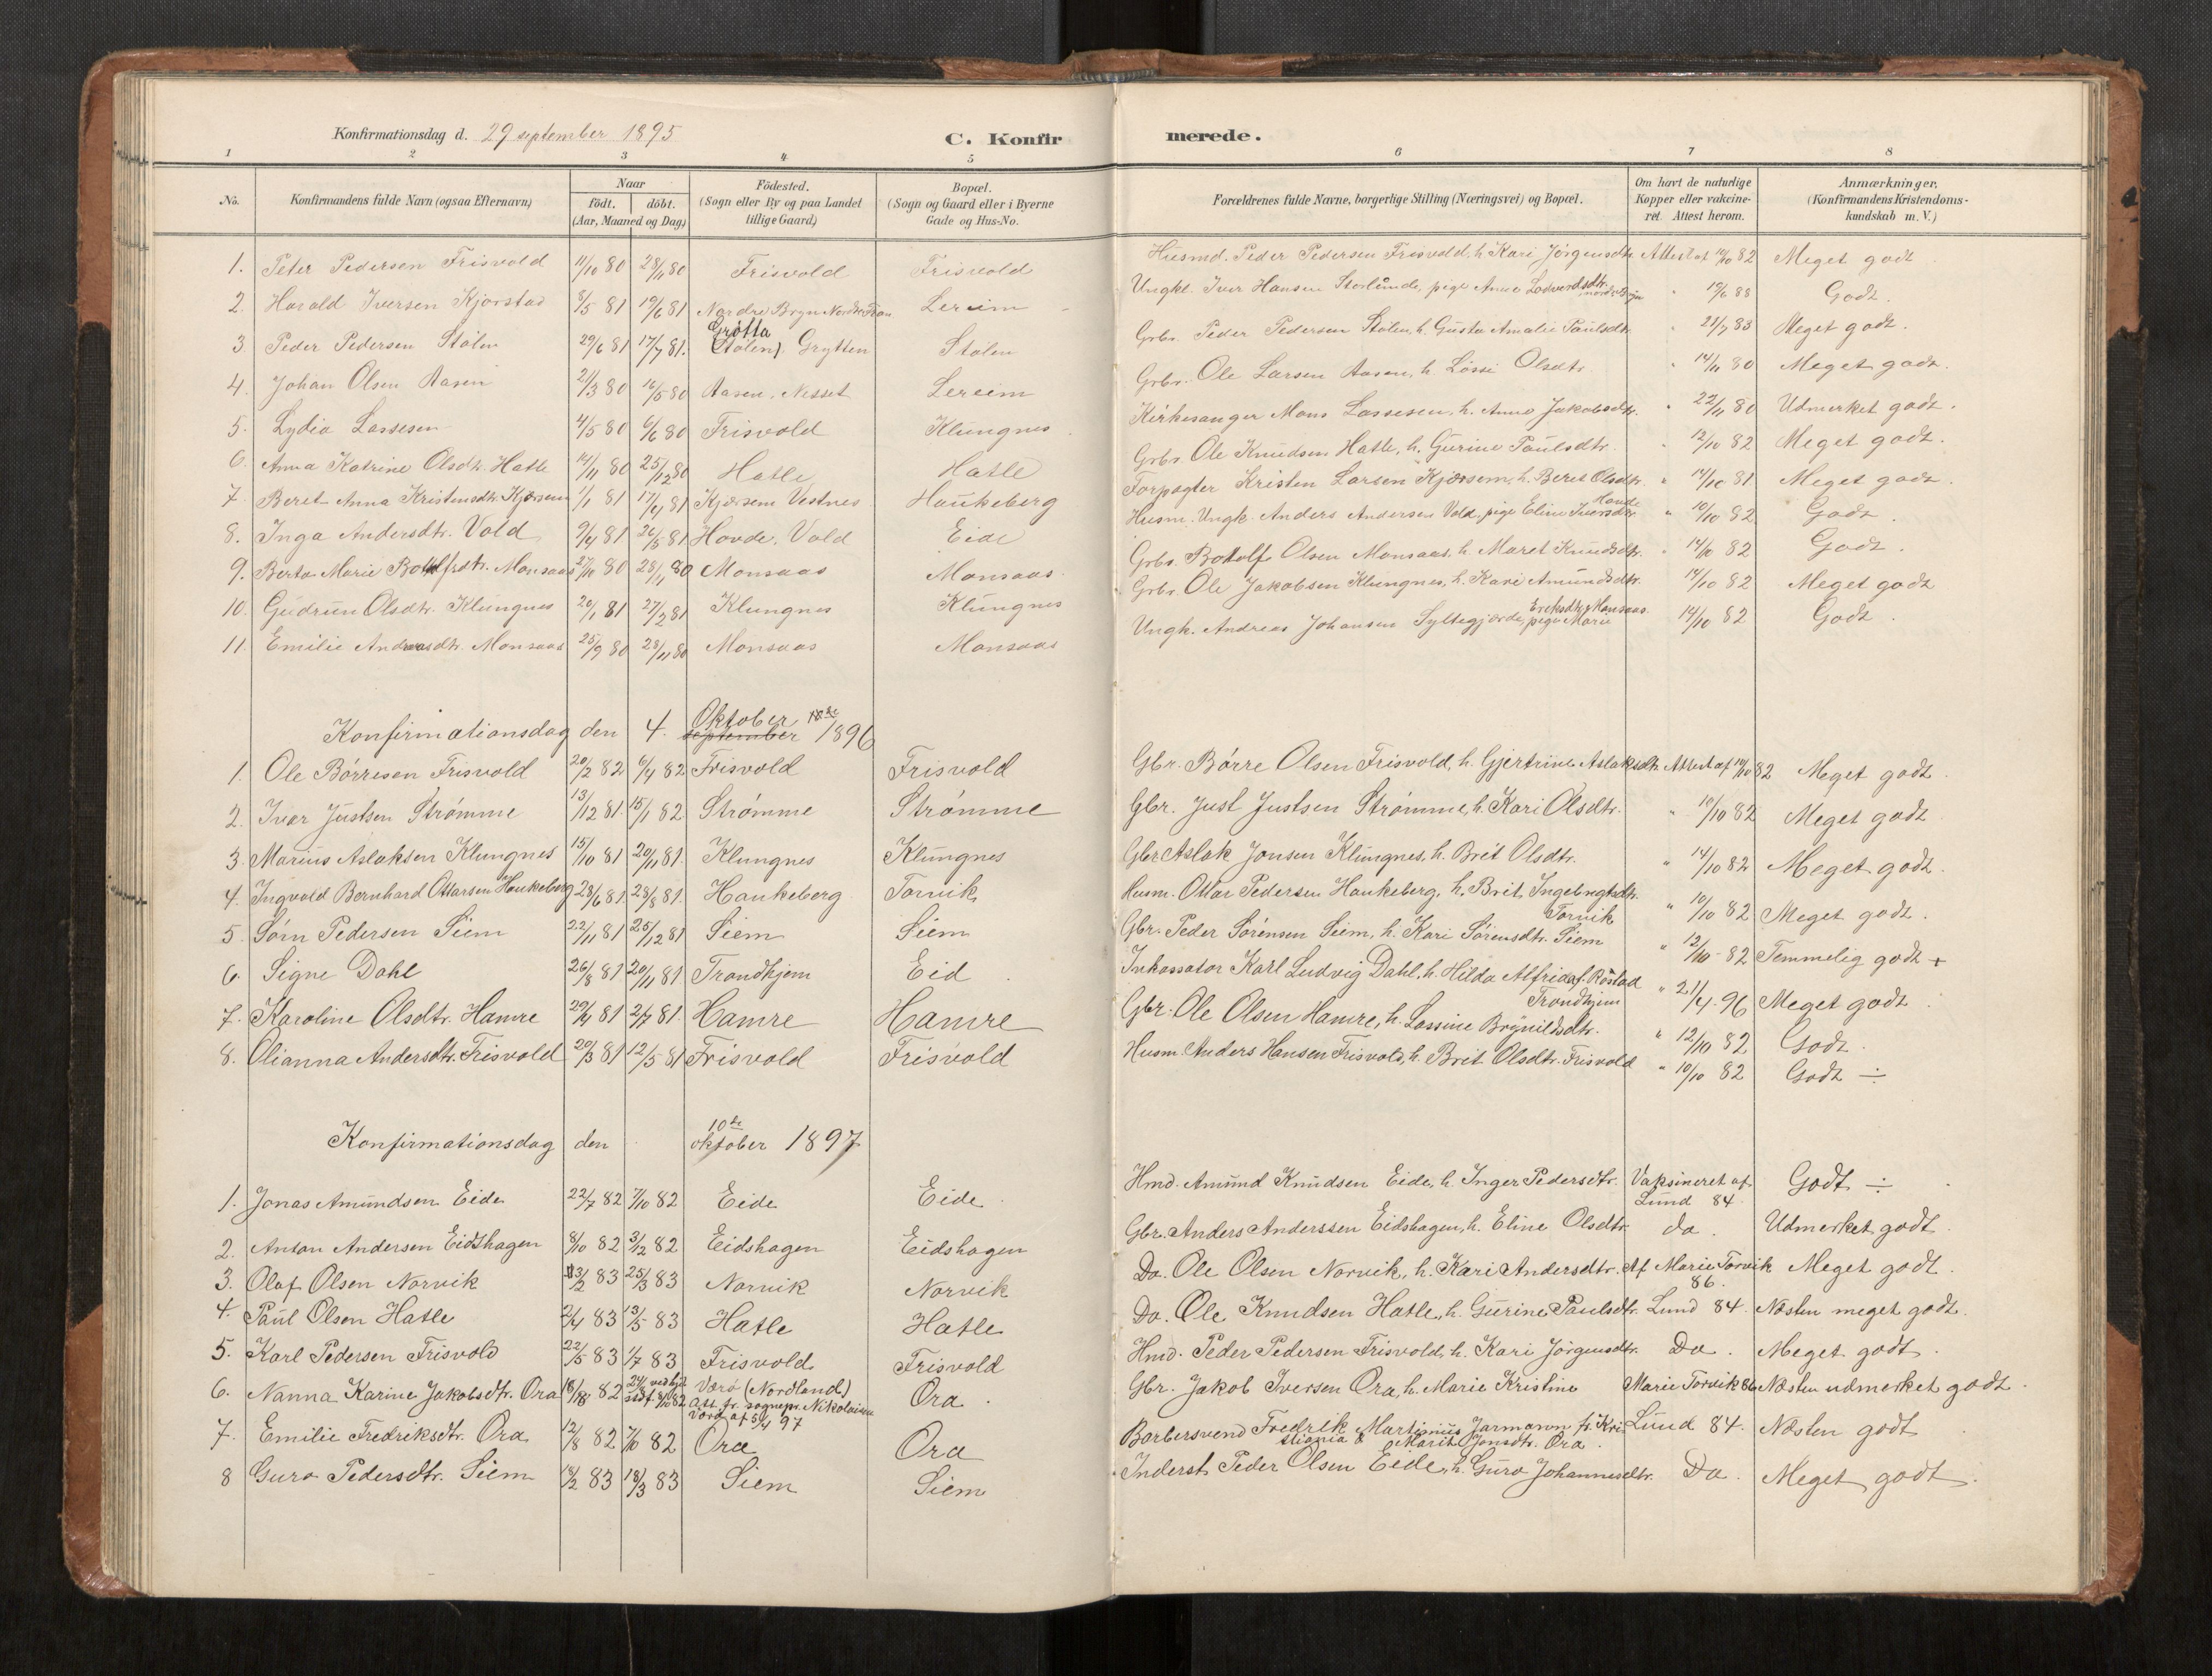 Konfirmationsdag d. 29 september 1895
C. Konfirmerede.
1 2 3 4 5 6 7 8
No. Konfirmandens fulde Navn (ogsaa Efternavn) Naar födt. döbt. (Aar, Maaned og Dag) Födested. (Sogn eller By og paa Landet tillige Gaard) Bopæl. (Sogn og Gaard eller i Byerne Gade og Hus-No. Forældrenes fulde Navne, borgerlige Stilling (Næringsvei) og Bopæl. Om havt de naturlige Kopper eller vakcineret. Attest herom. Anmærkninger. (Konfirmandens Kristendomskundskab m. V.)
1. Peter Pedersen Frisvold 11/10 80 28/11 80 Frisvold Frisvold Husmd. Peder Pedersen Frisvold, h. Kari Jørgensdtr. Attest af 10/10 82 Meget godt
2. Harald Iversen Kjørstad 8/5 81 19/6 81 Nordre Bryn Lereim Ungkl. Iver Hansen Storlunde, pige Anne " 19/6 88 Godt.
3. Peder Pedersen Stølen 29/6 81 17/7 81. Grøtta (Stølen). Grytten Stølen Grbr. Peder Pedersen Stølen, h. Gusta Amalie Paulsdtr. " 21/7 83 Meget godt.
4. Johan Olsen Aasen 21/3 80 16/5 80 Aasen, Nesset Lereim Grbr. Ole Larsen Aasen, h. Lossi Olsdtr. " 14/11 80 Meget godt.
5. Lydia Lassesen 4/5 80 6/6 80 Frisvold Klungnes Kirkesanger Mons Lassesen, h. Anne Jakobsdtr. " 22/11 80 Udmerket godt.
6. Anna Katrine Olsdtr. Hatle 14/11 80 25/12 80 Hatle Hatle Grbr. Ole Knudsen Hatle, h. Gurine Paulsdtr. " 12/10 82 Meget godt.
7. Beret Anna Kristensdtr. Kjørsem 1/1 81 17/4 81 Kjørsem Vestnes Haukeberg Forpagter Kristen Larsen Kjørsem, h. Beret Olsdtr. " 14/10 81 Meget godt.
8. Inga Andersdtr. Vold 9/4 81 26/5 81 Hovde, Vold Eide Husm. Ungk. Anders Andersen Vold, pige Eline Iversdtr. " 10/10 82 Godt.
9. Berta Marie Botolfsdtr. Monsaas 27/10 80 28/11 80 Monsaas Monsaas Grbr. Botolf Olsen Monsaas, h. Maret Knudsdtr. " 14/10 82 Godt.
10. Gudrun Olsdtr. Klungnes 20/1 81 27/2 81 Klungnes Klungnes Grbr. Ole Jakobsen Klungnes, h. Kari Amundsdtr. 14/10 82 Meget godt
11. Emilie Andreasdtr. Monsaas 25/9 80 28/11 80 Monsaas Monsaas Ungk. Andreas Johansen Syltegjærde, pige Marie Ereksdtr. Monsaas 14/10 82 Godt.
Konfirmationsdag den 4. Oktober september 1896
1. Ole Børresen Frisvold 20/2 82 6/4 82 Frisvold Frisvold Gbr. Børre Olsen Frisvold, h. Gjertrine Aslaksdtr. Attest af 10/10 82 Meget godt.
2. Ivar Justsen Strømme 13/12 81. 15/1 82. Strømme Strømme Gbr. Just Justsen Strømme, h. Kari Olsdtr. " 10/10 82 Meget godt
3. Marius Aslaksen Klungnes 15/10 81 20/11 81. Klungnes Klungnes Gbr. Aslak Jonsen Klungnes, h. Brit Olsdtr. " 14/10 82 Meget godt.
4. Ingvald Bernhard Ottarsen Haukeberg 23/6 81. 28/8 81. Haukeberg Torvik Husm. Ottar Pedersen Haukeberg, h. Brit Ingebrigtsdtr. Torvik " 10/10 82 Meget godt.
5. Sørn Pedersen Siem 22/11 81 25/12 81 Siem Siem Gbr. Peder Sørensen Siem, h. Kari Sørensdtr. Siem " 12/10 82 Temmelig godt +
6. Signe Dahl 26/8 81 20/11 81 Trondhjem Eid Inkassator Karl Ludvig Dahl, h. Hilda Alfrida f. Röstad Trondhjem " 21/4 96 Meget godt
7. Karoline Olsdtr. Hamre 29/4 81 2/7 81. Hamre Hamre Gbr. Ole Olsen Hamre, h. Lassine Brynildsdtr. " 12/10 82 Godt.
8. Olianna Andersdtr. Frisvold 20/3 81 12/5 81 Frisvold Frisvold Husm. Anders Hansen Frisvold, h. Brit Olsdtr. Frisvold " 10/10 82 Godt ÷
Konfirmationsdag den 10de oktober 1897
1. Jonas Amundsen Eide 22/7 82 7/10 82 Eide Eide Hmd. Amund Knudsen Eide, h. Inger Pedersdtr. Vaksineret af Lund 84. Godt ÷
2. Anton Andersen Eidshagen 8/10 82 3/12 82 Eidshagen Eidshagen Gbr. Anders Anderssen Eidshagen, h. Eline Olsdtr. da. Udmerket godt.
3. Olaf Olsen Norvik 13/2 83 25/3 83 Norvik Norvik Do. Ole Olsen Norvik, h. Kari Andersdtr. Af Marie Torvik 86. Meget godt.
4. Paul Olsen Hatle 2/4 83 13/5 83 Hatle Hatle Do. Ole Knudsen Hatle, h. Gurine Paulsdtr. Lund 84. Næsten meget godt.
5. Karl Pedersen Frisvold 22/5 83 1/7 83 Frisvold Frisvold Hmd. Peder Pedersen Frisvold, h. Kari Jörgensdtr. Do. Meget godt.
6. Nanna Karine Jakobsdtr. Ora 82 Værö (Nordland) Att. fr. sognepr. Nikolaisen Værö af 5/4 97 Ora Gbr. Jakob Iversen Ora, h. Marie Kristine Marie Torvik 86 Næsten udmerket godt.
7. Emilie Fredriksdtr. Ora 12/8 82 7/10 82 Ora Ora Barbersvend Fredrik Martinius Jarmann fr. Kristiania & Marit Jonsdtr. Ora. Lund 84. Næsten godt
8 Guro Pedersdtr. Siem 18/2 83 18/3 83 Siem Siem Inderst Peder Olsen Eide, h. Guro Johannesdtr. Do. Meget godt.